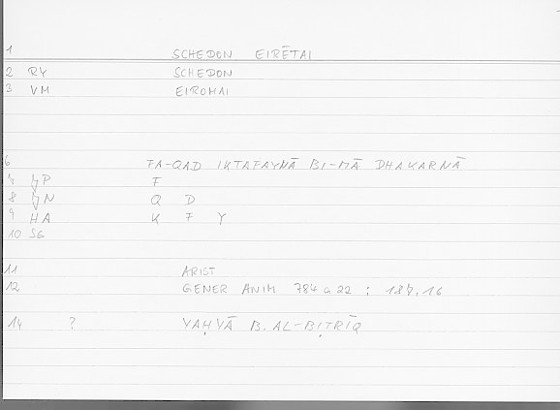 1 SCHEDON EIRĒTAI
2 RY SCHEDON
3 VM EIROMAI
6 FA-QAD IKTAFAYNĀ BI-MĀ DHAKARNĀ
7 P F
8 N Q D
9 HA K F Y
10 SG
11 ARIST
12 GENER ANIM 784 a 22 : 187,16
14 ? YAḤYĀ B. AL-BIṬRĪQ